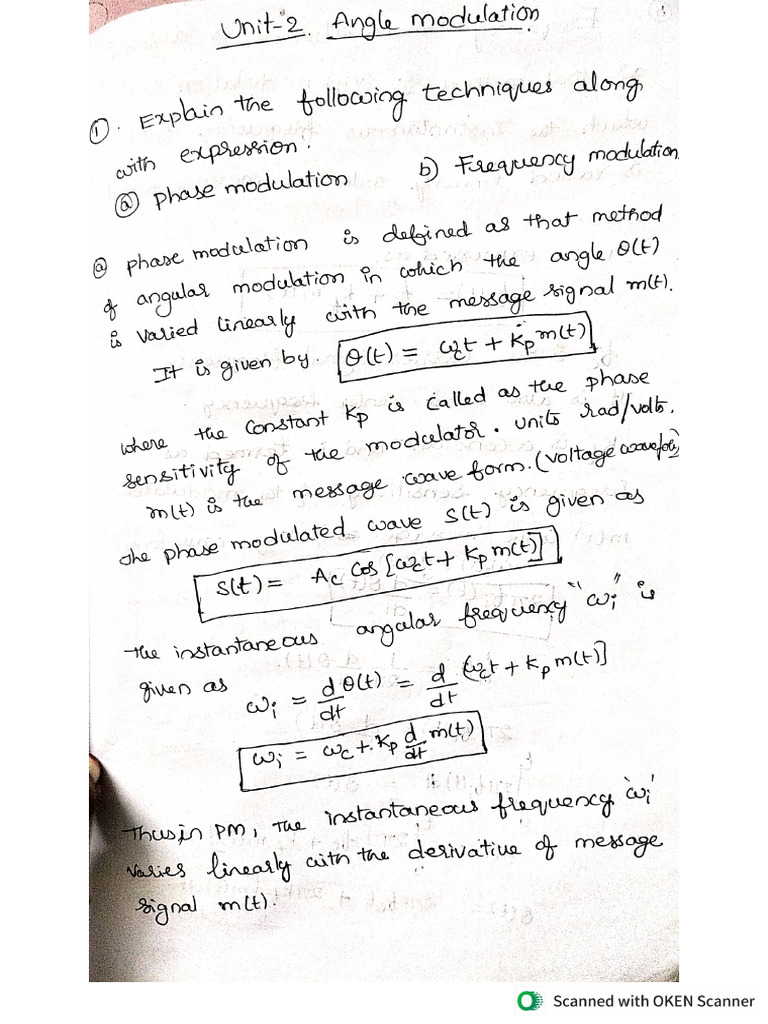 Unit-2. Angle modulation
①. Explain the following techniques along
with expression.
ⓐ phase modulation b) Frequency modulation
ⓐ phase modulation is defined as that method
of angular modulation in which the angle θ(t)
is varied linearly with the message signal m(t).
It is given by. θ(t) = ωct + Kp m(t)
where the constant Kp is called as the phase
sensitivity of the modulator. units rad/volts.
m(t) is the message wave form. (voltage
The phase modulated wave S(t) is given as
S(t) = Ac cos [ωct + Kp m(t)]
The instantaneous angular frequency "ωi" is
given as ωi = d/dt θ(t) = d/dt [ωct + Kp m(t)]
ωi = ωc + Kp d/dt m(t)
Thus, in PM, the instantaneous frequency 'ωi'
varies linearly with the derivative of message
signal m(t).
Scanned with OKEN Scanner